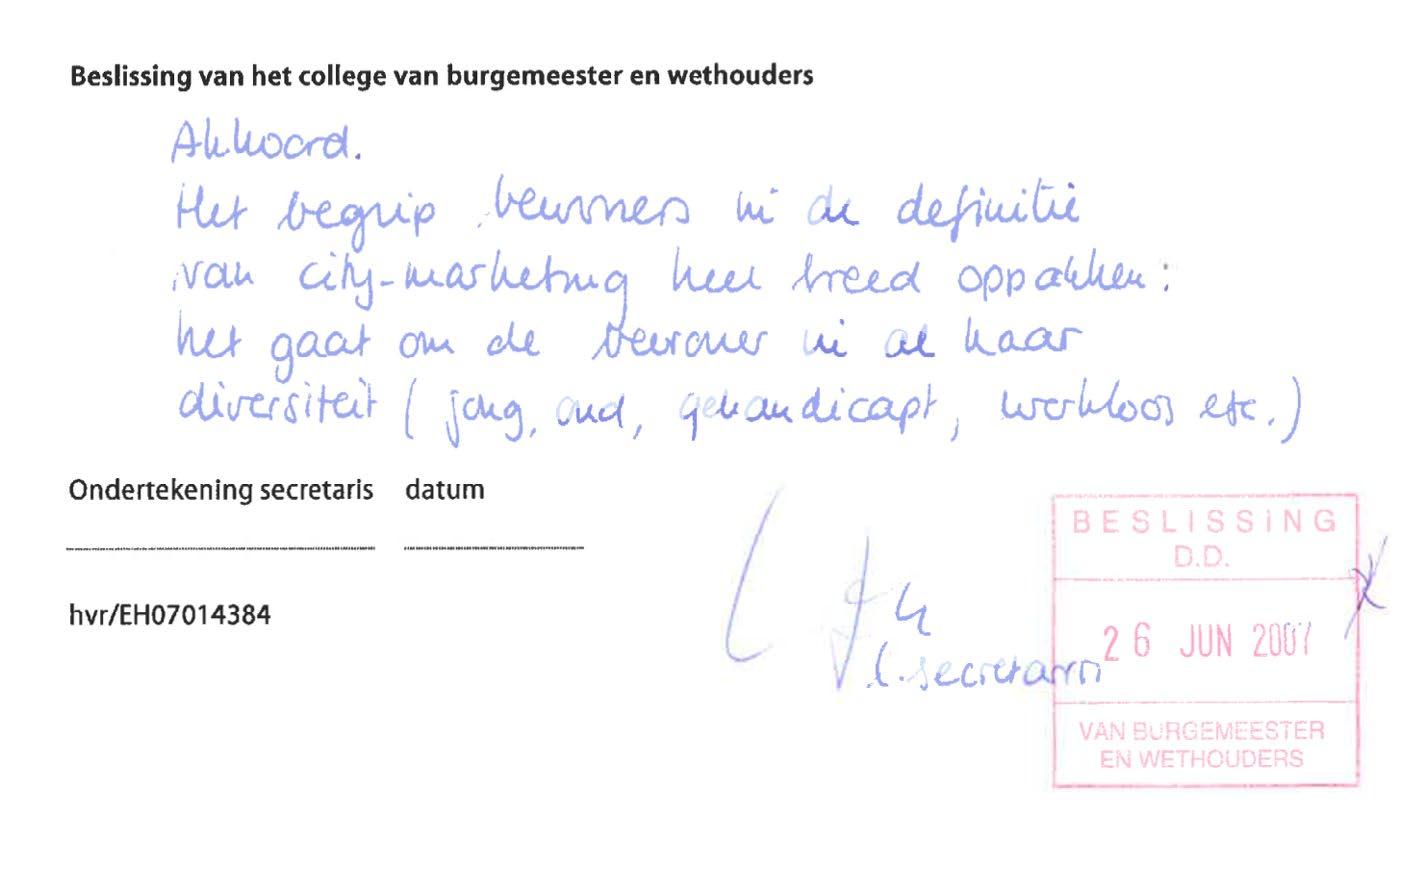 Beslissing van het college van burgemeester en wethouders
Akkoord.
Het begrip bewoners in de definitie
van city-marketing heel breed oppakken:
het gaat om de bewoner in al haar
diversiteit (jong, oud, gehandicapt, werkloos etc.)
Ondertekening secretaris datum
hvr/EH07014384
l. secretaris
BESLISSING
D.D.
26 JUN 2007
VAN BURGEMEESTER
EN WETHOUDERS